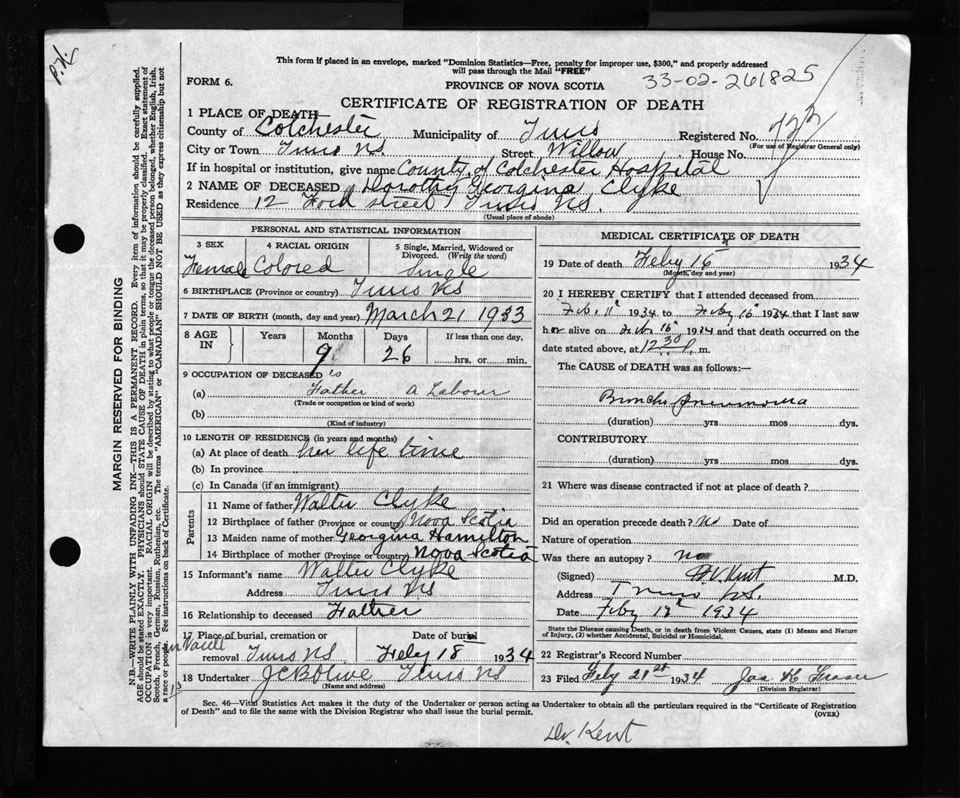 This form if placed in an envelope, marked "Dominion Statistics—Free, penalty for improper use, $300," and properly addressed
will pass through the Mail "FREE"
P.H.
33-02-261825
FORM 6.
PROVINCE OF NOVA SCOTIA
CERTIFICATE OF REGISTRATION OF DEATH
1 PLACE OF DEATH
County of Colchester Municipality of Truro Registered No.
(For use of Registrar General only)
City or Town Truro NS. Street Willow House No.
If in hospital or institution, give name County of Colchester Hospital
2 NAME OF DECEASED Dorothy Georgina Clyke
Residence 12 Ford street Truro NS.
(Usual place of abode)
PERSONAL AND STATISTICAL INFORMATION
3 SEX 4 RACIAL ORIGIN 5 Single, Married, Widowed or Divorced. (Write the word)
Female Colored Single
6 BIRTHPLACE (Province or country) Truro NS
7 DATE OF BIRTH (month, day and year) March 21 1933
8 AGE IN Years Months Days If less than one day,
9 26 hrs. or min.
9 OCCUPATION OF DECEASED is
(a) Father A Labour
(Trade or occupation or kind of work)
(b)
(Kind of industry)
10 LENGTH OF RESIDENCE (in years and months)
(a) At place of death her life time
(b) In province
(c) In Canada (if an immigrant)
Parents
11 Name of father Walter Clyke
12 Birthplace of father (Province or country) Nova Scotia
13 Maiden name of mother Georgina Hamilton
14 Birthplace of mother (Province or country) Nova Scotia
15 Informant's name Walter Clyke
Address Truro NS
16 Relationship to deceased Father
17 Place of burial, cremation or removal Truro NS. Date of burial Feby 18 1934
18 Undertaker Truro NS
(Name and address)
MEDICAL CERTIFICATE OF DEATH
19 Date of death Feby 16 1934
(Month, day and year)
20 I HEREBY CERTIFY that I attended deceased from
Feb. 11" 1934 to Feby 16" 1934 that I last saw
her alive on Feb 16" 1934 and that death occurred on the
date stated above, at 12.30 P. m.
The CAUSE of DEATH was as follows:—
Broncho pneumonia
(duration) yrs mos dys.
CONTRIBUTORY
(duration) yrs mos dys.
21 Where was disease contracted if not at place of death?
Did an operation precede death? No Date of
Nature of operation
Was there an autopsy? no
(Signed) H.V. Kent M.D.
Address Truro N.S.
Date Feby 1934
State the Disease causing Death, or in death from Violent Causes, state (1) Means and Nature
of Injury, (2) whether Accidental, Suicidal or Homicidal.
22 Registrar's Record Number
23 Filed Feby 21st 1934 Jas H Fraser
(Division Registrar)
Sec. 46—Vital Statistics Act makes it the duty of the Undertaker or person acting as Undertaker to obtain all the particulars required in the "Certificate of Registration
of Death" and to file the same with the Division Registrar who shall issue the burial permit.
(OVER)
Dr. Kent
MARGIN RESERVED FOR BINDING
N.B.—WRITE PLAINLY WITH UNFADING INK—THIS IS A PERMANENT RECORD. Every item of information should be carefully supplied.
AGE should be stated EXACTLY. PHYSICIANS should STATE CAUSE OF DEATH in plain terms, so that it may be properly classified. Exact statement of
OCCUPATION is very important. RACIAL ORIGIN will be described by stating to what people or tongue the deceased person belonged, whether English, Irish,
Scotch, French, German, Russian, Ruthenian, etc. The terms "AMERICAN" or "CANADIAN" SHOULD NOT BE USED as they express citizenship but not
a race or people. See instructions on back of Certificate.